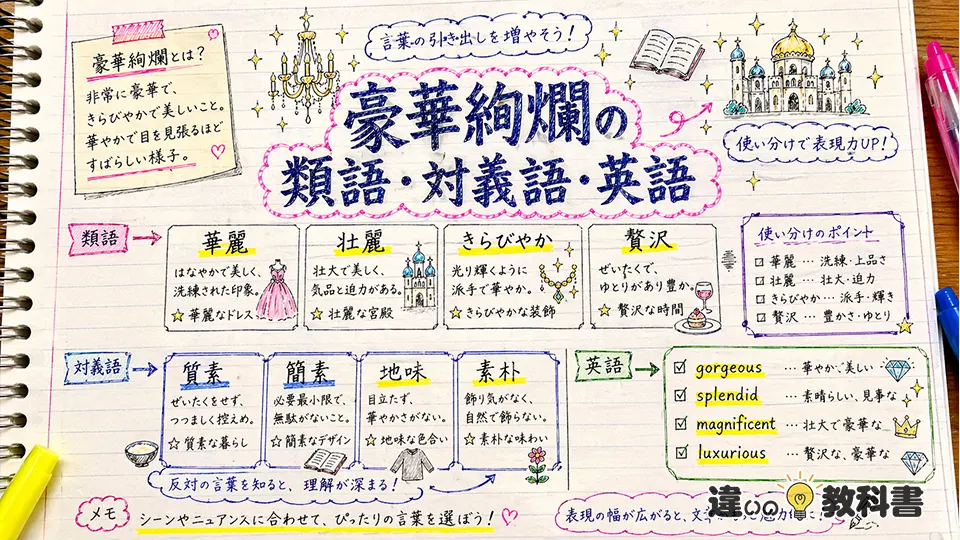 豪華絢爛とは？
非常に豪華で、
きらびやかで美しいこと。
華やかで目を見張るほど
すばらしい様子。
言葉の引き出しを増やそう！
豪華絢爛の
類語・対義語・英語
使い分けで表現力UP！
類語
華麗
はなやかで美しく、
洗練された印象。
華麗なドレス
壮麗
壮大で美しく、
気品と迫力がある。
壮麗な宮殿
きらびやか
光り輝くように
派手で華やか。
きらびやかな装飾
贅沢
ぜいたくで、
ゆとりがあり豊か。
贅沢な時間
使い分けのポイント
華麗…洗練・上品さ
壮麗…壮大・迫力
きらびやか…派手・輝き
贅沢…豊かさ・ゆとり
対義語
質素
ぜいたくをせず、
つつましく控えめ。
質素な暮らし
簡素
必要最小限で、
無駄がないこと。
簡素なデザイン
地味
目立たず、
華やかさがない。
地味な色合い
素朴
飾り気がなく、
自然で飾らない。
素朴な味わい
反対の言葉を知ると、理解が深まる！
英語
gorgeous …華やか、美しい
splendid …素晴らしい、見事な
magnificent …壮大で豪華な
luxurious …贅沢な、豪華な
メモ
シーンやニュアンスに合わせて、ぴったりの言葉を選ぼう！
表現の幅が広がると、文章
違いの教科書